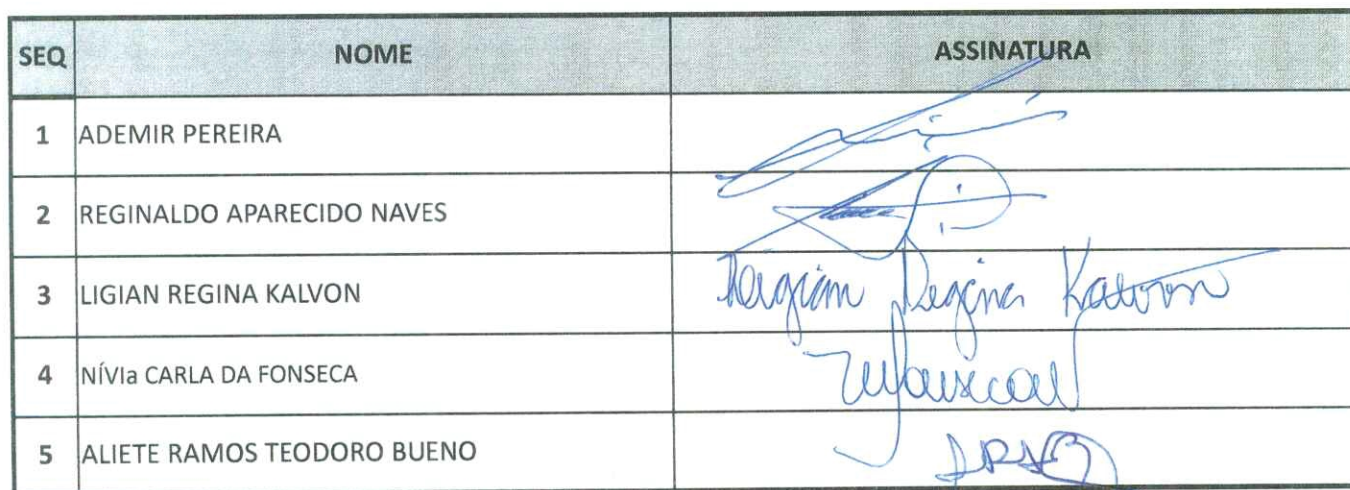 SEQ NOME ASSINATURA
1 ADEMIR PEREIRA
2 REGINALDO APARECIDO NAVES
3 LIGIAN REGINA KALVON Ligian Regina Kalvon
4 NÍVIa CARLA DA FONSECA
5 ALIETE RAMOS TEODORO BUENO